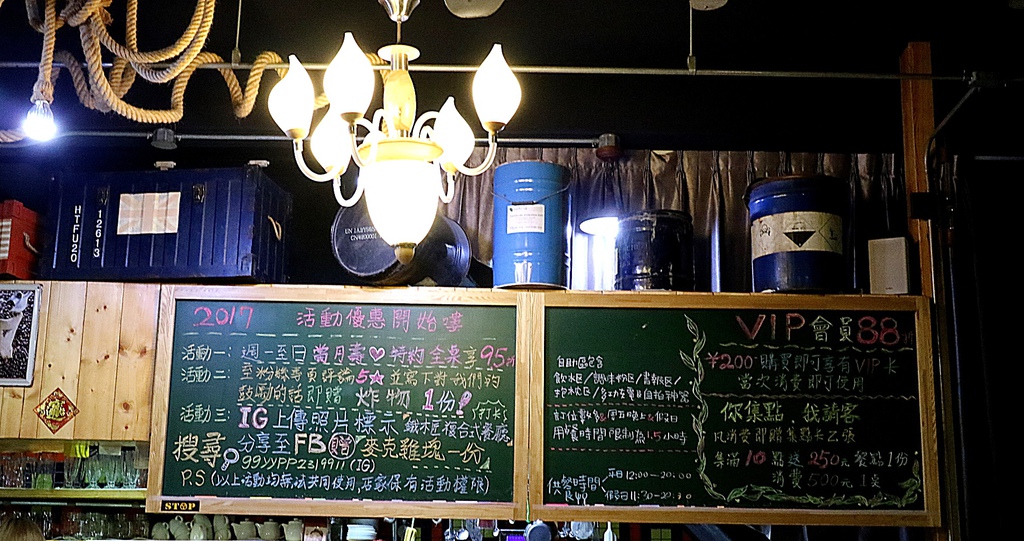 HTFU20
12613
2017 活動優惠開始嘍
活動一: 週一至日 當月壽♡特約 全桌享95折
活動二: 至粉絲專頁評論5☆ 並寫下對我們的
鼓勵的話即贈 炸物 1份!
活動三: IG上傳照片標示 鐵木匠複合式餐廳 (打卡)
搜尋 分享至FB 贈 麥克雞塊一份
99YYPPZ319911 (IG)
P.S (以上活動均無法共同使用,店家保有活動權限)
STOP
自助區包含
飲水區/調味粉區/書報區/
用餐時間限制為1.5小時
供餐時間:
平日12:00~20:00
假日11:30~20:30
VIP會員88折
¥200 購買即可享有VIP卡
當次消費即可使用
你集點,我請客
凡消費即贈集點卡乙張
集滿10點送250元餐點1份
消費500元1點